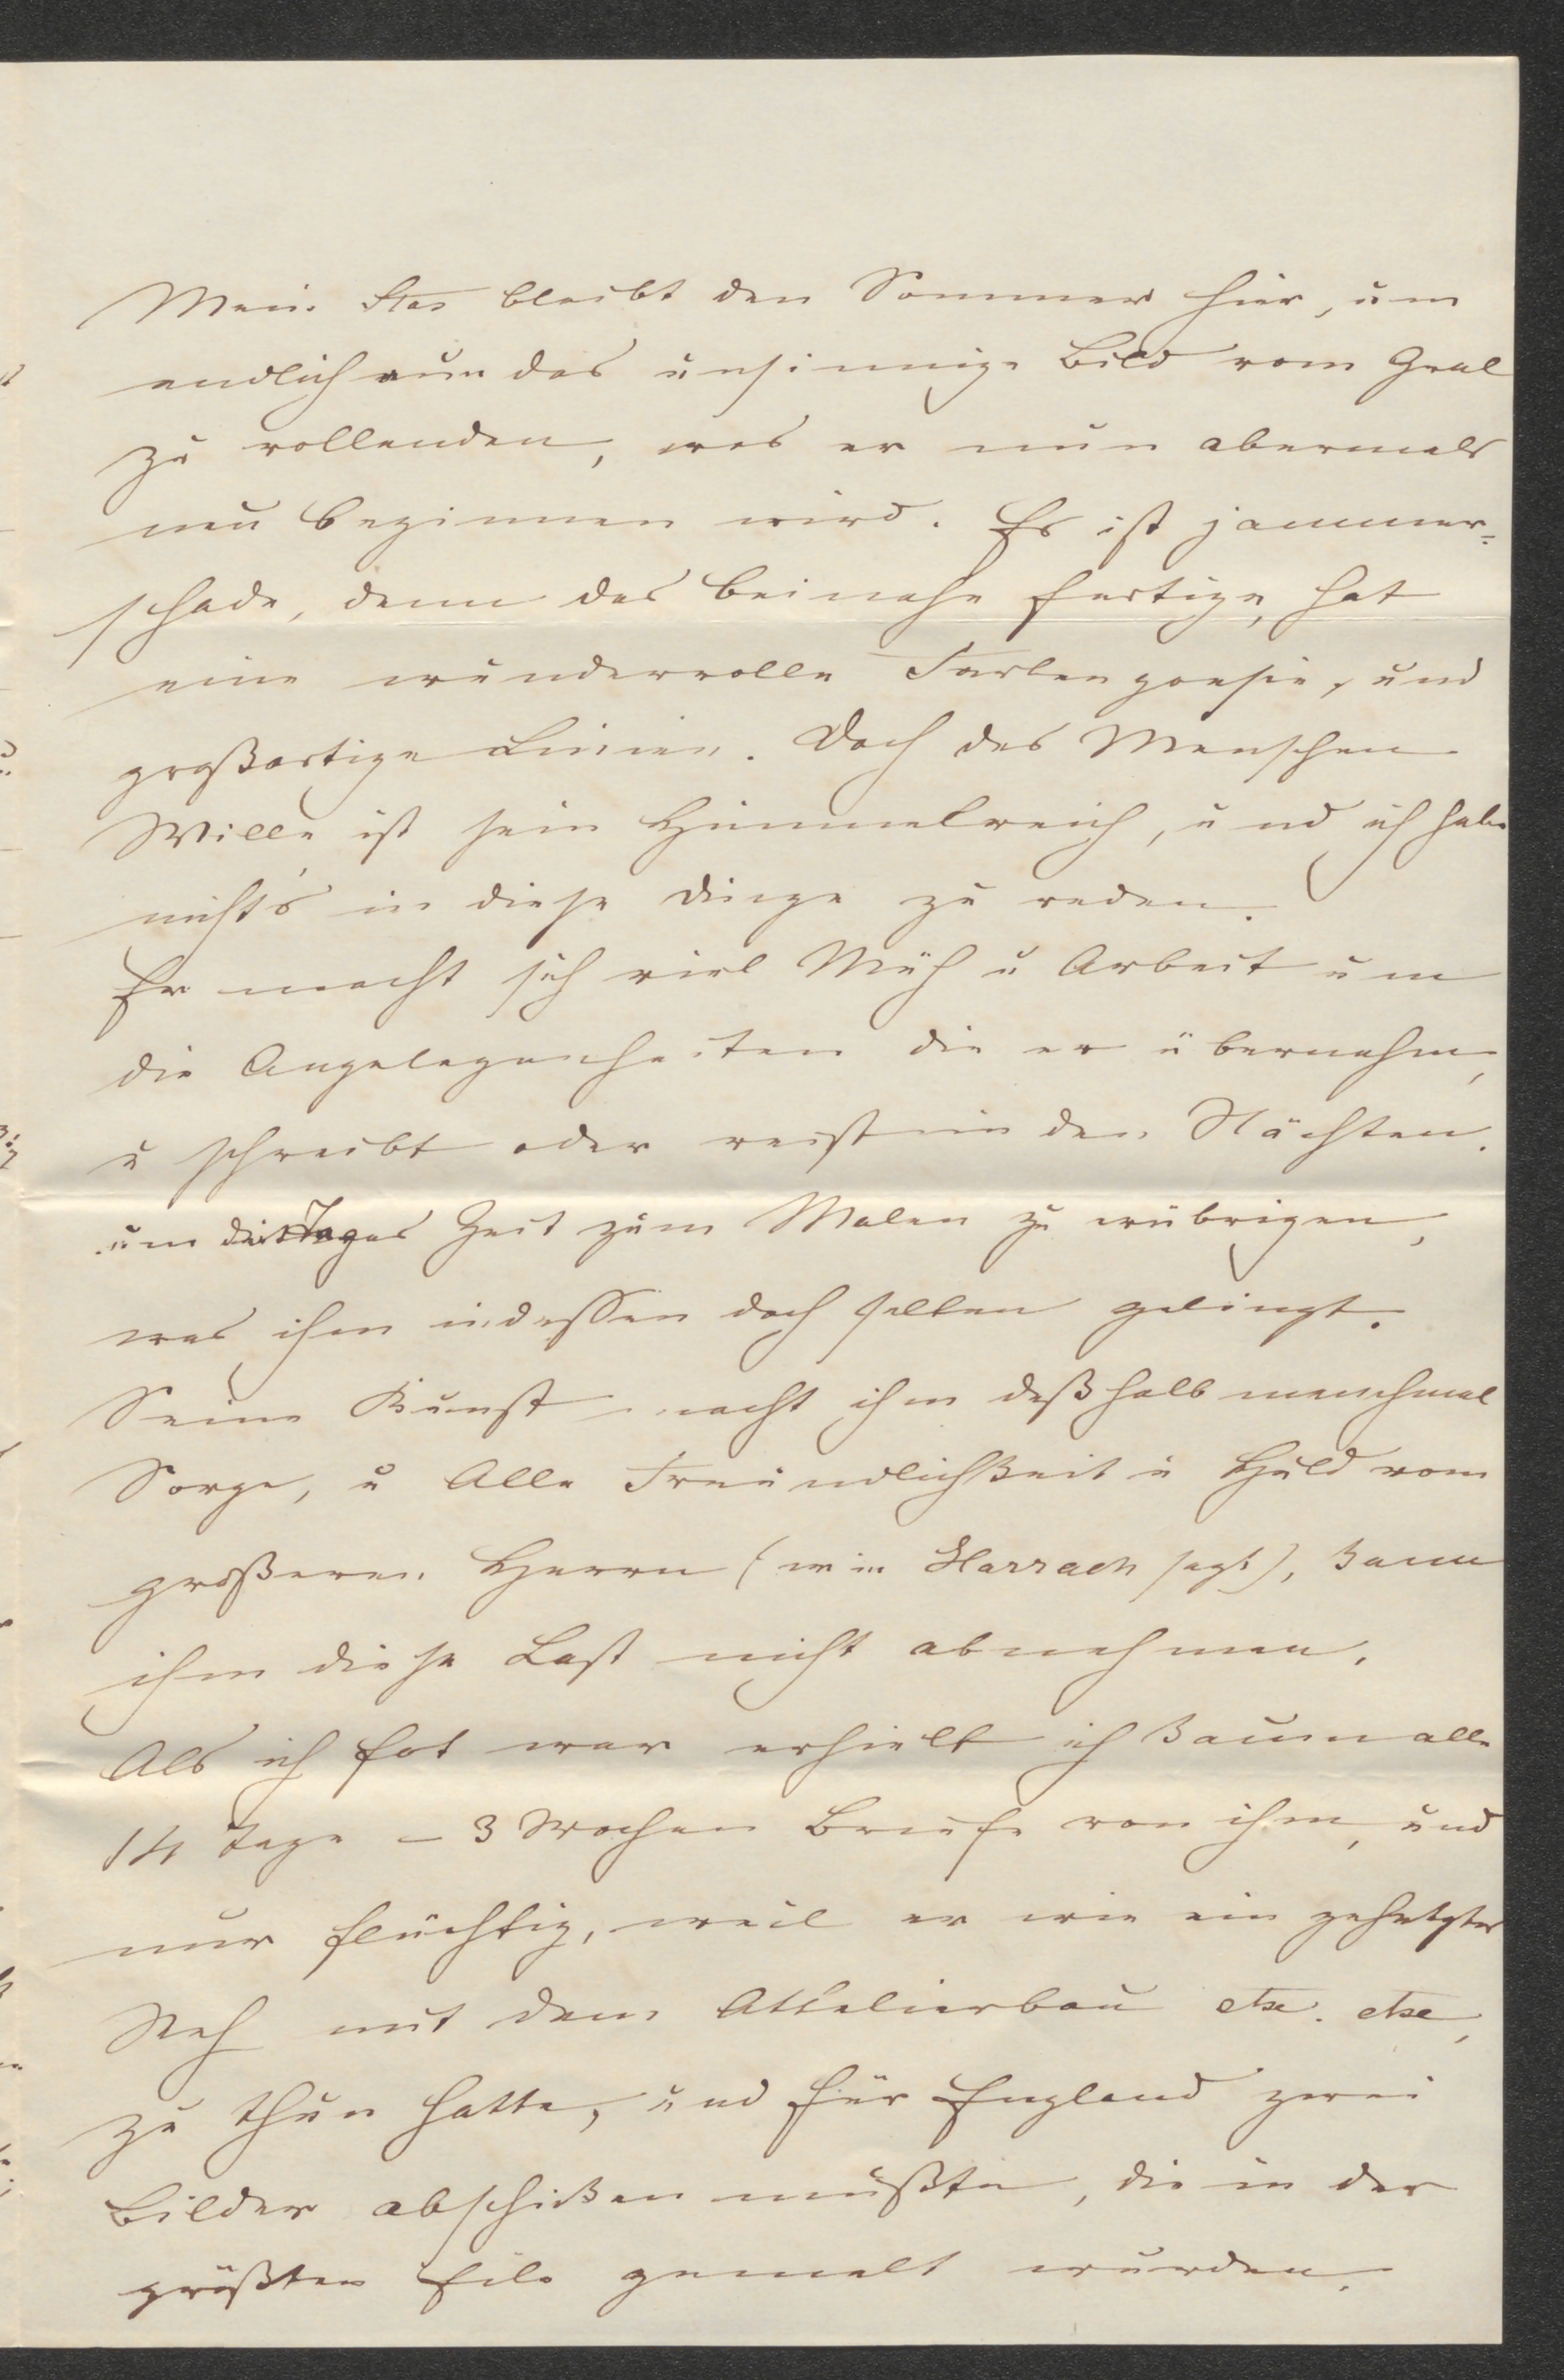 Mein Stas bleibt den Sommer hier, um
endlich nun das unsinnige Bild vom Gral
zu vollenden, was er nun abermals
neu beginnen wird. Es ist jammer=
schade, denn das beinahe fertige, hat
eine wundervolle Farbenpoesie, und
großartige Linien. Doch des Menschen
Wille ist sein Himmelreich, und ich habe
nicht's in diese Dinge zu reden.
Er macht sich viel Müh u Arbeit um
die Angelegenheiten die er übernahm,
u schreibt oder reist in den Nächten.
um des Tages Zeit zum Malen zu erübrigen,
was ihm indessen doch selten gelingt.
Seine Kunst macht ihm deßhalb manchmal
Sorge, u Alle Freundlichkeit u Huld vom
großeren Herrn (wie Harrach sagt), kann
ihm diese Last nicht abnehmen.
Als ich fot war erhielt ich kaum alle
14 Tage – 3 Wochen Briefe von ihm, und
nur flüchtig, weil er wie ein gehetztes
Reh mit dem Attelierbau etc. etc,
zu thun hatte, und für England zwei
Bilder abschicken mußte, die in der
größten Eile gemalt wurden.